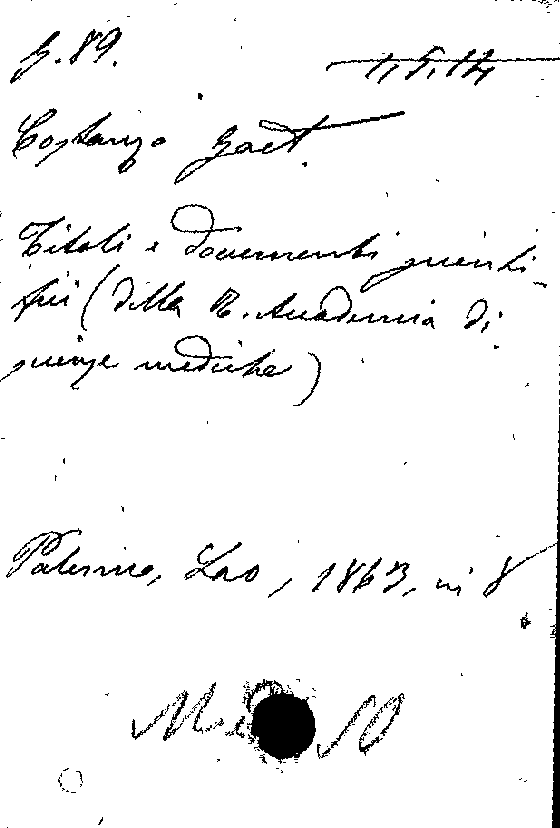 G.89.
1,5,14
Costanzo Gaet.
Titoli e documenti scienti-
fici (della R. Accademia di
scienze mediche)
Palermo, Lao, 1863, in 8